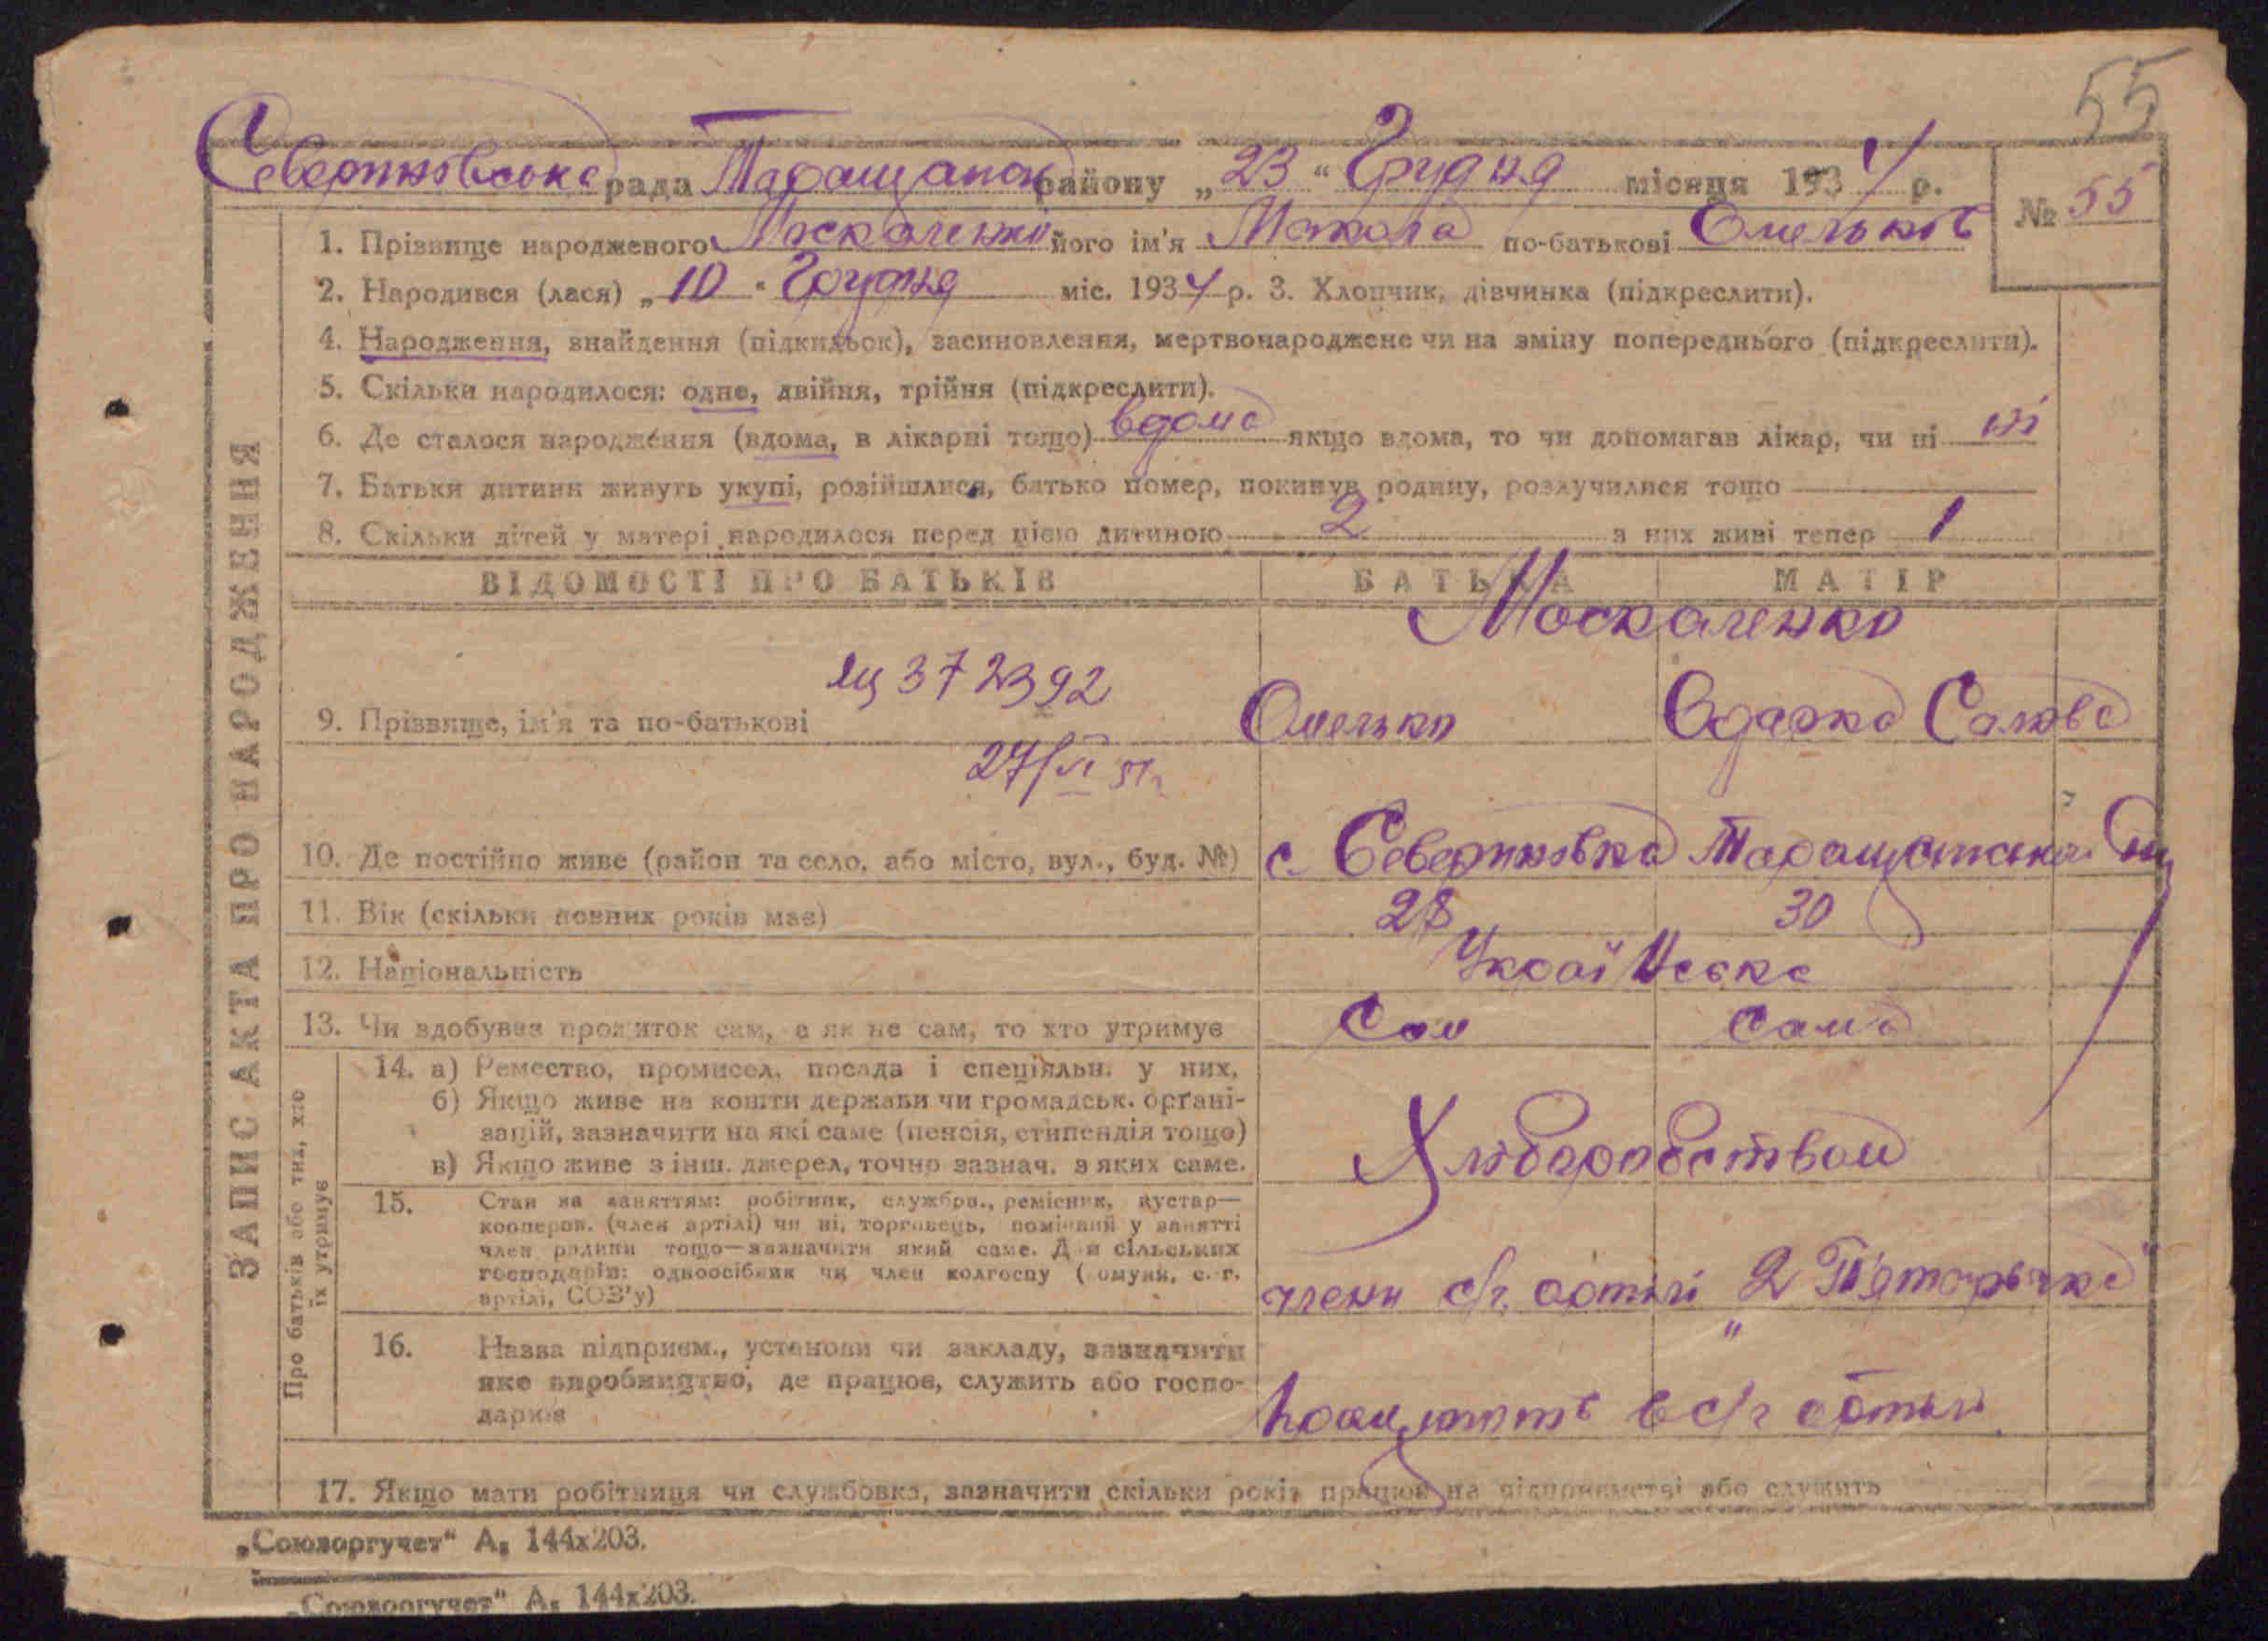 55
Севериновська рада Таращанськ району „23" Грудня місяця 1934 р.
№ 55
1. Прізвище народженого Москаленко його ім'я Микола по-батькові Омельков
2. Народився (лася) „10" Грудня міс. 1934 р. 3. Хлопчик, дівчинка (підкреслити).
4. Народження, знайдення (підкидьок), засиновлення, мертвонароджене чи на зміну попереднього (підкреслити).
5. Скільки народилося: одне, двійня, трійня (підкреслити).
6. Де сталося народження (вдома, в лікарні тощо) вдома якщо вдома, то чи допомагав лікар, чи ні ні
7. Батьки дитини живуть укупі, розійшлися, батько помер, покинув родину, розлучилися тощо
8. Скільки дітей у матері народилося перед цією дитиною 2 з них живі тепер 1
ЗАПИС АКТА ПРО НАРОДЖЕННЯ
ВІДОМОСТІ ПРО БАТЬКІВ БАТЬКА МАТІР
Москаленко
ЯЦ 372392
9. Прізвище, ім'я та по-батькові Омелько Одарка Савова
27/VI 51р
10. Де постійно живе (район та село, або місто, вул., буд. №) с Севериновка Таращанськ
11. Вік (скільки повних років має) 28 30
12. Національність Українська
13. Чи здобуває прожиток сам, а як не сам, то хто утримує Сам Сама
Про батьків або тих, хто їх утримує
14. а) Ремество, промисел, посада і спеціяльн. у них,
б) Якщо живе на кошти держави чи громадськ. орґані-
зацій, зазначити на які саме (пенсія, стипендія тощо)
в) Якщо живе з інш. джерел, точно зазнач. з яких саме.
Хліборобством
15. Стан за заняттям: робітник, службов., ремісник, кустар—
кооперов. (член артілі) чи ні, торговець, помічний у занятті
член родини тощо—зазначити який саме. Для сільських
господарів: одноосібник чи член колгоспу (комуни, с.-г.
артілі, СОЗ'у)
члени с/г. артілі "2 П'ятирічка"
16. Назва підприєм., установи чи закладу, зазначити
яке виробництво, де працює, служить або госпо-
дарює
Працюють в с/г артілі
17. Якщо мати робітниця чи службовка, зазначити скільки років працює на підприємстві або служить
„Союзоргучет" А₅ 144х203.
„Союзоргучет" А₅ 144х203.